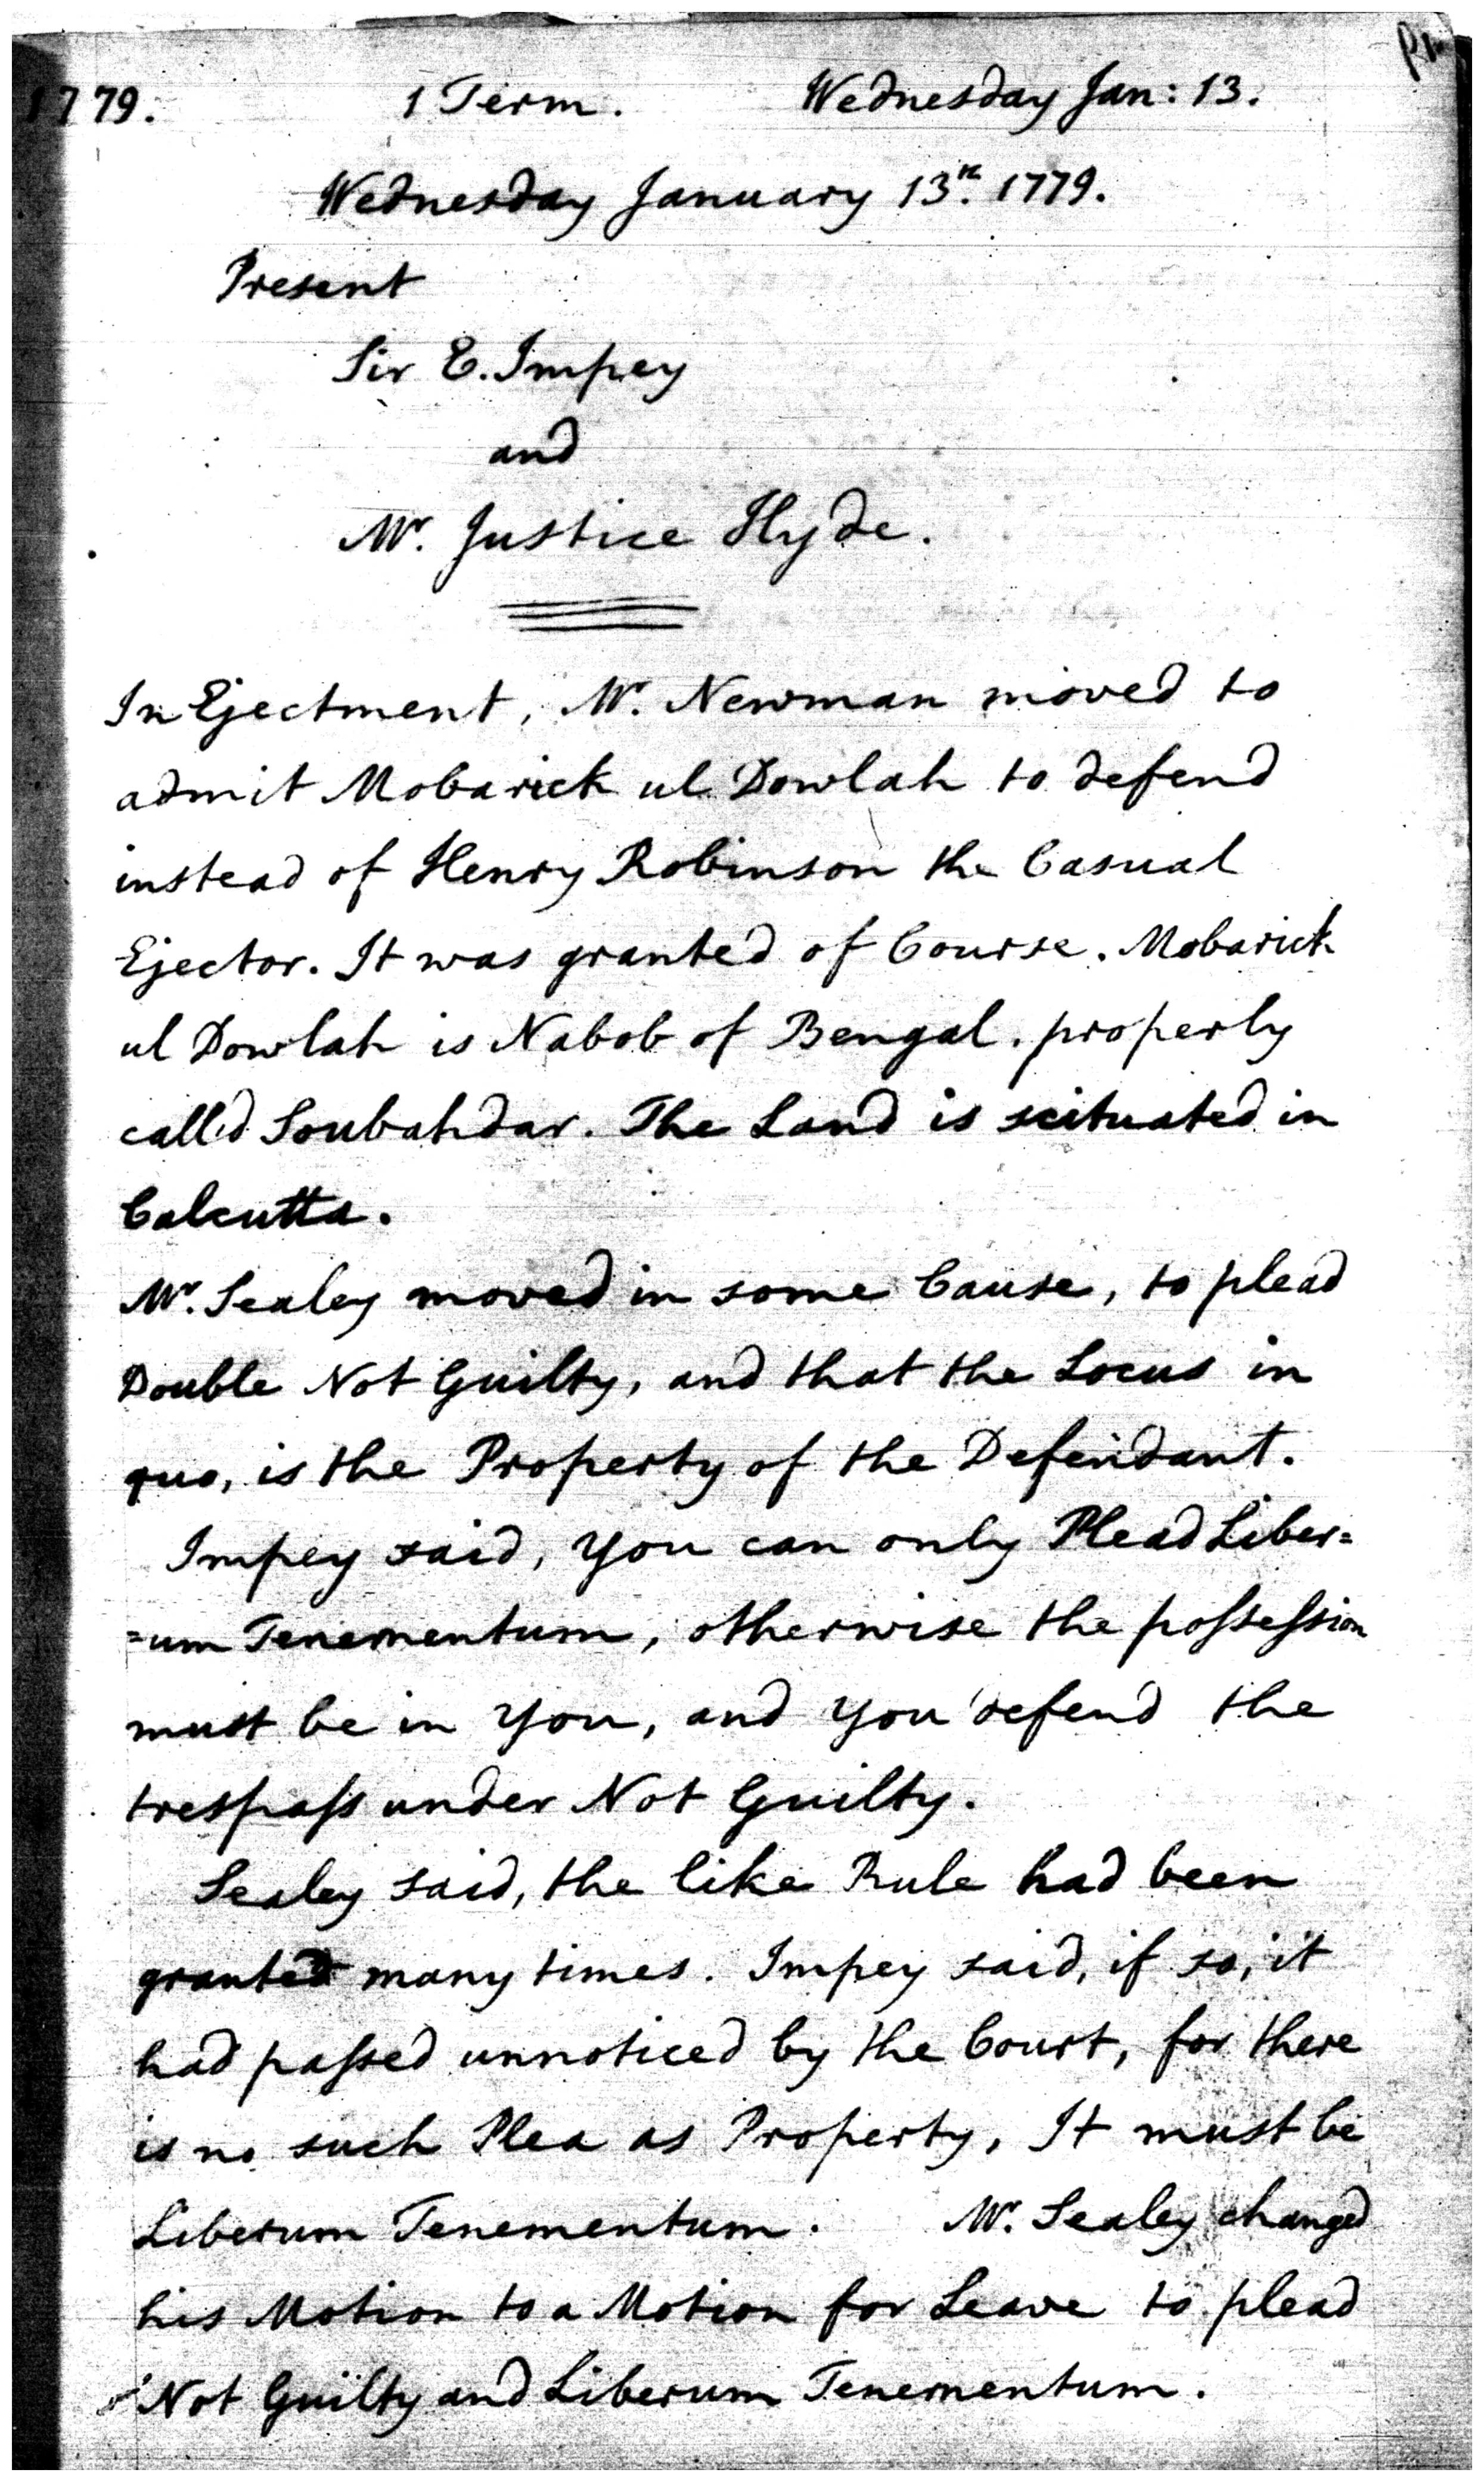 1779. 1 Term. Wednesday Jan: 13.
Wednesday January 13th. 1779.
Present
Sir E. Impey
and
Mr. Justice Hyde.
In Ejectment, Mr. Newman moved to
admit Mobarick ul Dowlah to defend
instead of Henry Robinson the Casual
Ejector. It was granted of Course. Mobarick
ul Dowlah is Nabob of Bengal, properly
called Soubahdar. The Land is scituated in
Calcutta.
Mr. Sealey moved in some Cause, to plead
Double Not Guilty, and that the Locus in
quo, is the Property of the Defendant.
Impey said, you can only Plead Liber=
=um Tenementum, otherwise the poſseſsion
must be in you, and you defend the
treſpaſs under Not Guilty.
Sealey said, the like Rule had been
granted many times. Impey said, if so, it
had paſsed unnoticed by the Court, for there
is no such Plea as Property, It must be
Liberum Tenementum. Mr. Sealey changed
his Motion to a Motion for Leave to plead
Not Guilty and Liberum Tenementum.